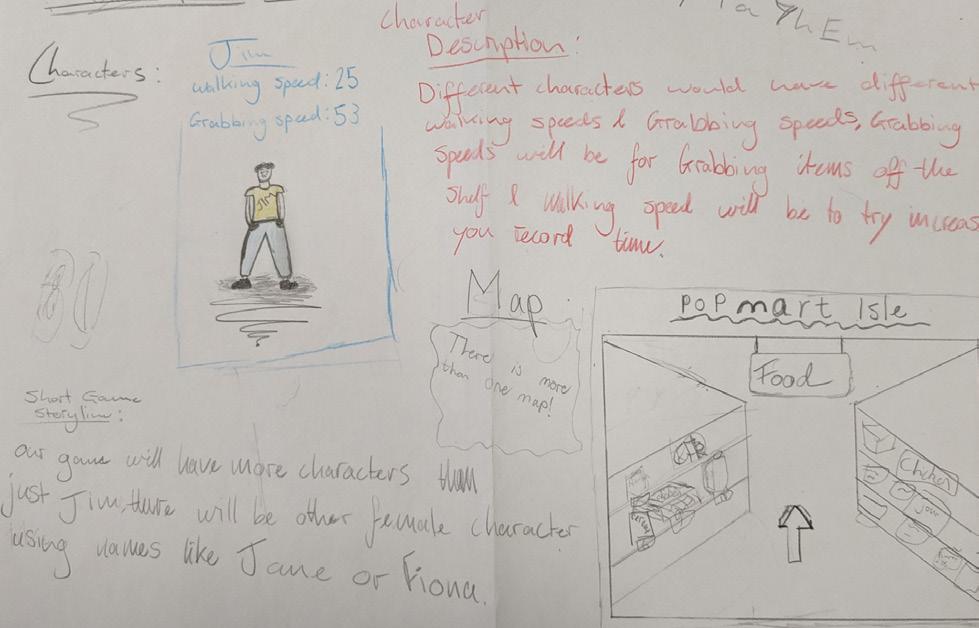 aYhEm
Characters:
Jim
walking speed: 25
Grabbing speed: 53
JIM
Character
Description:
Different characters would have different
walking speeds & Grabbing speeds, Grabbing
speeds will be for Grabbing items off the
shelf & Walking speed will be to try increas
you record time.
Map
There is more
than one map!
POPmart Isle
Food
Short Game
Storyline:
our game will have more characters than
just Jim, there will be other female character
using names like Jane or Fiona.